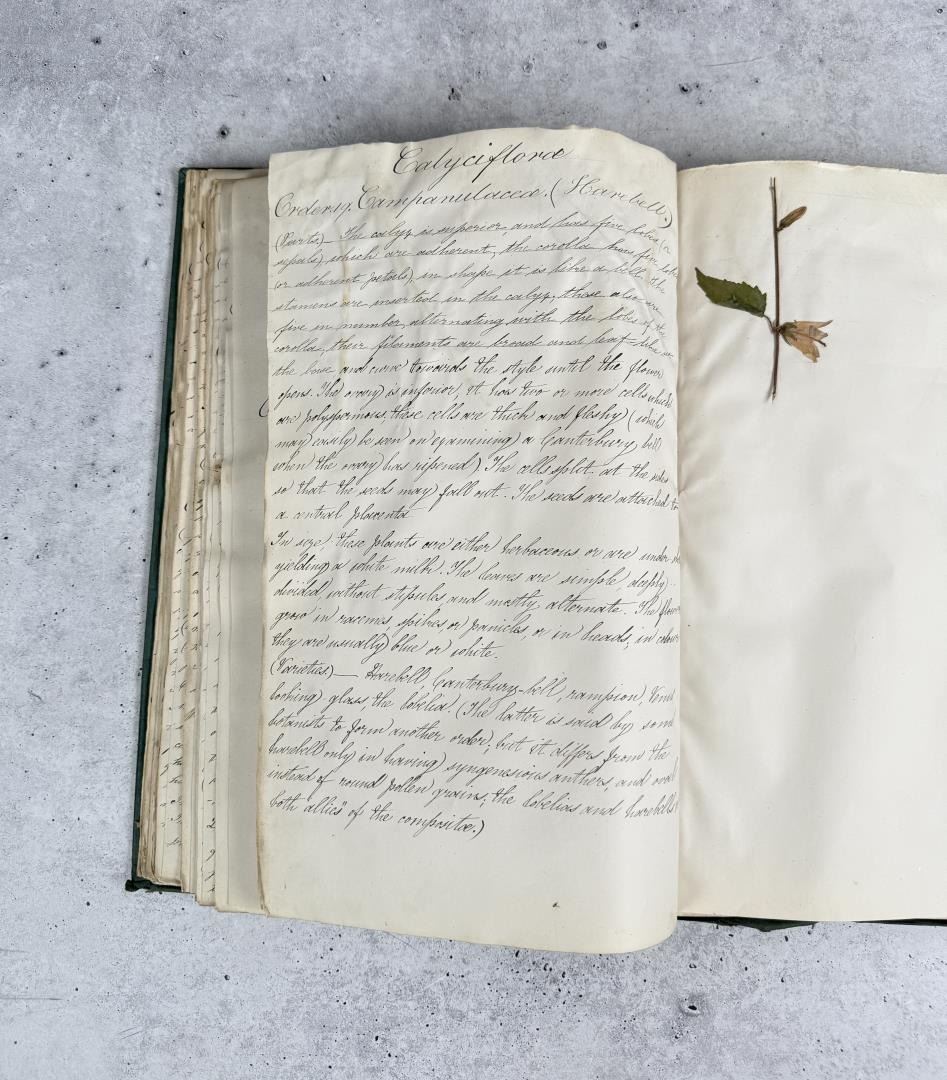 Calycifloræ
Order 57. Campanulaceæ. (Harebell.)
(Parts)— The calyx is superior, and has five lobes (or
sepals), which are adherent, the corolla has five lobes
(or adherent petals), in shape it is like a bell, the
stamens are inserted in the calyx, these also are
five in number, alternating with the lobes of the
corolla, their filaments are broad and leaf-like at
the base and curve towards the style until the flower
opens. The ovary is inferior, it has two or more cells which
are polyspermous, these cells are thick and fleshy (which
may easily be seen on examining a Canterbury bell
when the ovary has ripened) The cells split at the sides
so that the seeds may fall out. The seeds are attached to
a central placenta
In size, these plants are either herbaceous or are under
yielding a white milk. The leaves are simple, deeply
divided, without stipules, and mostly alternate. The flowers
grow in racemes, spikes, or panicles, or in heads, in colour
they are usually blue or white.
(Varieties)— Harebell, Canterbury-bell, rampion, Venus
looking glass the lobelia. (The latter is said by some
botanists to form another order, but it differs from the
harebell only in having syngenesious anthers, and oval
instead of round pollen grains; the lobelias and harebells
both "allies" of the compositæ.)